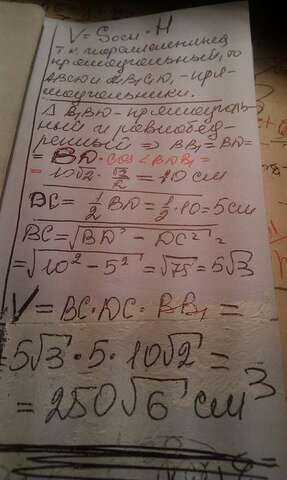 V = Sосн · H
Т.к параллелепипед
прямоугольный, то
ABCD и A₁B₁C₁D₁ - пря-
моугольники.
Δ B₁BD - прямоуголь-
ный и равнобед-
ренный => BB₁ = BD =
= BD · cos < BDB₁ =
= 10√2 · √2/2 = 10 см
BC = 1/2 BD = 1/2 · 10 = 5 см
BC = √BD² - DC² =
= √10² - 5² = √75 = 5√3
V = BC · DC · BB₁ =
5√3 · 5 · 10√2 =
= 250√6 см³